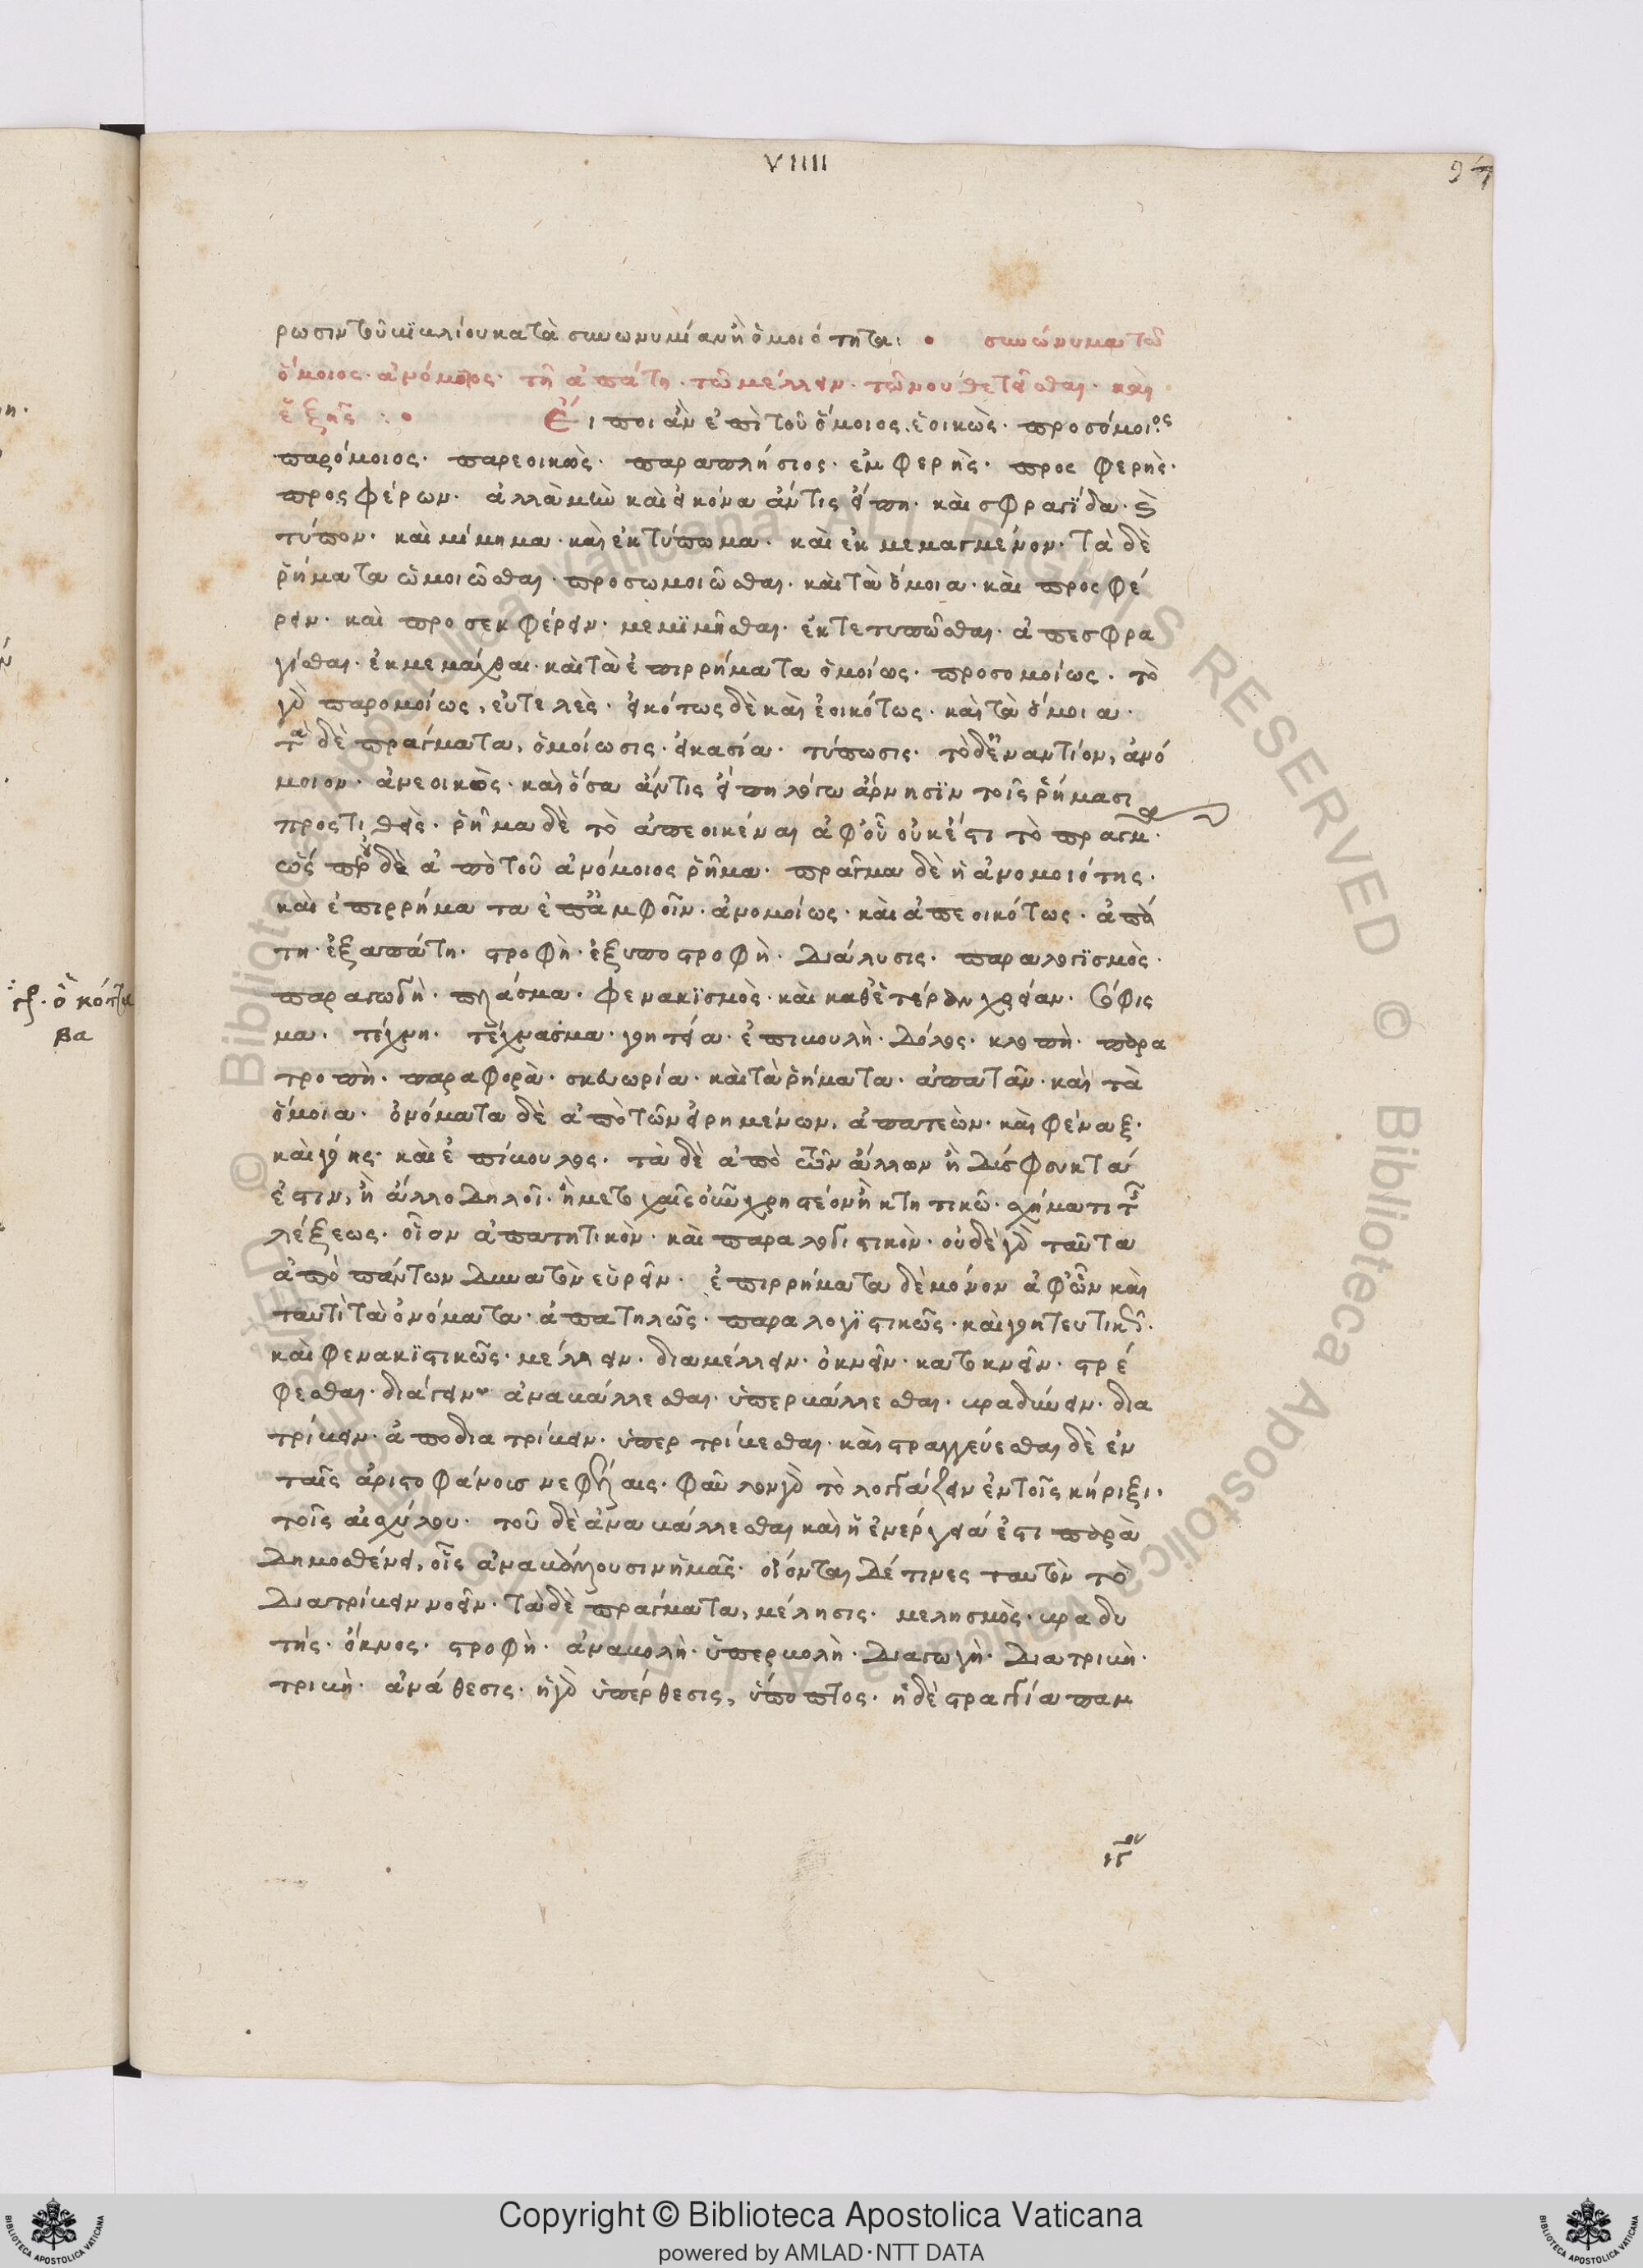 VIIII
97
ρωσιν τοῦ βιβλίου κατὰ συνωνυμίαν ἢ ὁμοιότητα: • συνώνυμα τοῦ
ὅμοιος· ἀνόμοιος· τῆ ἀπάτη· τῶ μέλλειν· τῶ νουθετεῖσθαι· καὶ
ἑξῆς : •
Εἴποι ἂν ἐπὶ τοῦ ὅμοιος. ἐοικὼς· προσόμοιος
παρόμοιος· παρεοικὼς· παραπλήσιος· ἐμφερὴς· προςφερὴς·
προςφέρων· ἀλλὰ μὴν καὶ εἰκόνα ἄν τις εἴποι· καὶ σφραγῖδα· καὶ
τύπον· καὶ μίμημα· καὶ ἐκτύπωμα· καὶ ἐκμεμαγμένον· τὰ δὲ
ῥήματα ὡμοιῶσθαι· προσωμοιῶσθαι· καὶ τὰ ὅμοια· καὶ προςφέ
ρειν· καὶ προσεκφέρειν· μεμϊμῆσθαι· ἐκτετυπῶσθαι· ἀπεσφρα
γίσθαι· ἐκμεμάχθαι· καὶ τὰ ἐπιρρήματα ὁμοίως· προσομοίως· τὸ
γὰρ παρομοίως, εὐτελὲς· εἰκότως δὲ καὶ ἐοικότως· καὶ τὰ ὅμοια·
τὰ δὲ πράγματα, ὁμοίωσις· εἰκασία· τύπωσις· τὸ δ' ἐναντίον, ἀνό
μοιον· ἀνεοικὼς· καὶ ὅσα ἄν τις εἴπη λόγω ἄρνησϊν τοῖς ῥήμασι
προςτιθεὶς· ῥῆμα δὲ τὸ ἀπεοικέναι ἀφ' οὗ οὐκ ἔστι τὸ πρᾶγμα·
ὥσπερ οὐδὲ ἀπὸ τοῦ ἀνόμοιος ῥῆμα· πρᾶγμα δὲ ἡ ἀνομοιότης·
καὶ ἐπιρρήματα ἐπ' ἀμφοῖν· ἀνομοίως· καὶ ἀπεοικότως· ἀπά
τη· ἐξαπάτη· στροφὴ· ἐξυποστροφὴ· διάλυσις· παραλογϊσμὸς·
παραγωγὴ· πλάσμα· φενακϊσμὸς· καὶ καθ' ἑτέραν χρείαν· σόφις
μα· τέχνη· τέχνασμα· γοητεία· ἐπιβουλὴ· δόλος· κλοπὴ· παρα
τροπὴ· παραφορὰ· σκευωρία· καὶ τὰ ῥήματα· ἀπατᾶν· καὶ τὰ
ὅμοια· ὀνόματα δὲ ἀπὸ τῶν εἰρημένων, ἀπατεὼν· καὶ φέναξ·
καὶ γόης· καὶ ἐπίβουλος· τὰ δὲ ἀπὸ τῶν ἄλλων ἢ δύσφθεκτά
ἐστιν, ἢ ἄλλο δηλοῖ· ἢ μετοχαῖς οὖν χρηστέον ἢ κτητικῶ σχήματι τῆς
λέξεως· οἷον ἀπατητικὸν· καὶ παραλογιστικὸν· οὐδὲ γὰρ ταῦτα
ἀπὸ πάντων δυνατὸν εὑρεῖν· ἐπιρρήματα δὲ μόνον ἀφ' ὧν καὶ
ταυτὶ τὰ ὀνόματα· ἀπατηλῶς· παραλογϊστικῶς· καὶ γοητευτικῶς·
καὶ φενακϊστικῶς· μέλλειν· διαμέλλειν· ὀκνεῖν· κατοκνεῖν· στρέ
φεσθαι· διάγειν· ἀναβάλλεσθαι· ὑπερβάλλεσθαι· βραδύνειν· δια
τρίβειν· ἀποδιατρίβειν· ὑπερτρίβεσθαι· καὶ στραγγεύεσθαι δὲ ἐν
ταῖς ἀριστοφάνους νεφέλαις· φαῦλον γὰρ τὸ λογγάζειν ἐν τοῖς κήρυξι·
τοῖς αἰσχύλου· τοῦ δὲ ἀναβάλλεσθαι καὶ ἡ ἐνέργειά ἐστι παρὰ
δημοσθένει, οἷς ἀναβάλλουσιν ἡμᾶς· οἴονται δέ τινες ταυτὸν τὸ
διατρίβειν νοεῖν· τὰ δὲ πράγματα, μέλησις· μελησμὸς· βραδυ
τής· ὄκνος· στροφὴ· ἀναβολὴ· ὑπερβολὴ· διαγωγὴ· διατριβὴ·
τριβὴ· ἀνάθεσις· ἡ γὰρ ὑπέρθεσις, ὕποπτος· ἡ δὲ στραγγεία παν
ιγον
γρ. ὃ κότζα
βα
Copyright © Biblioteca Apostolica Vaticana
powered by AMLAD·NTT DATA